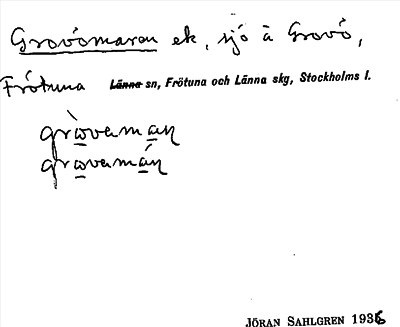 Grovömaren ek, sjö å Grovö,
Frötuna Länna sn, Frötuna och Länna skg, Stockholms l.
gròvəmaṇ
grovəmáṇ
JÖRAN SAHLGREN 1936